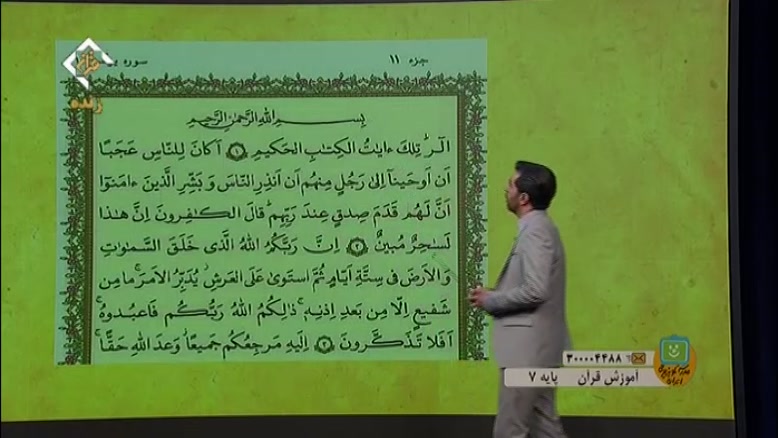 جزء ۱۱
سوره
زنده
بِسْمِ اللهِ الرَّحْمٰنِ الرَّحیمِ
الٓرٰ تِلكَ ءایٰتُ الكِتٰبِ الحَكیمِ ﴿۱﴾ اَكانَ لِلنّاسِ عَجَبًا
اَن اَوحَینآ اِلىٰ رَجُلٍ مِنهُم اَن اَنذِرِ النّاسَ وَ بَشِّرِ الَّذینَ ءامَنوٓا
اَنَّ لَهُم قَدَمَ صِدقٍ عِندَ رَبِّهِم قالَ الكٰفِرونَ اِنَّ هٰذا
لَسٰحِرٌ مُبینٌ ﴿۲﴾ اِنَّ رَبَّكُمُ اللهُ الَّذى خَلَقَ السَّمٰوٰتِ
وَ الاَرضَ فى سِتَّةِ اَیّامٍ ثُمَّ استَوىٰ عَلَى العَرشِ یُدَبِّرُ الاَمرَ ما مِن
شَفیعٍ اِلّا مِن بَعدِ اِذنِهٖ ذٰلِكُمُ اللهُ رَبُّكُم فَاعبُدوهُ
اَفَلا تَذَكَّرونَ ﴿۳﴾ اِلَیهِ مَرجِعُكُم جَمیعًا وَعدَ اللهِ حَقًّا
۳۰۰۰۴۴۸۸
آموزش قرآن پایه ۷
ایران